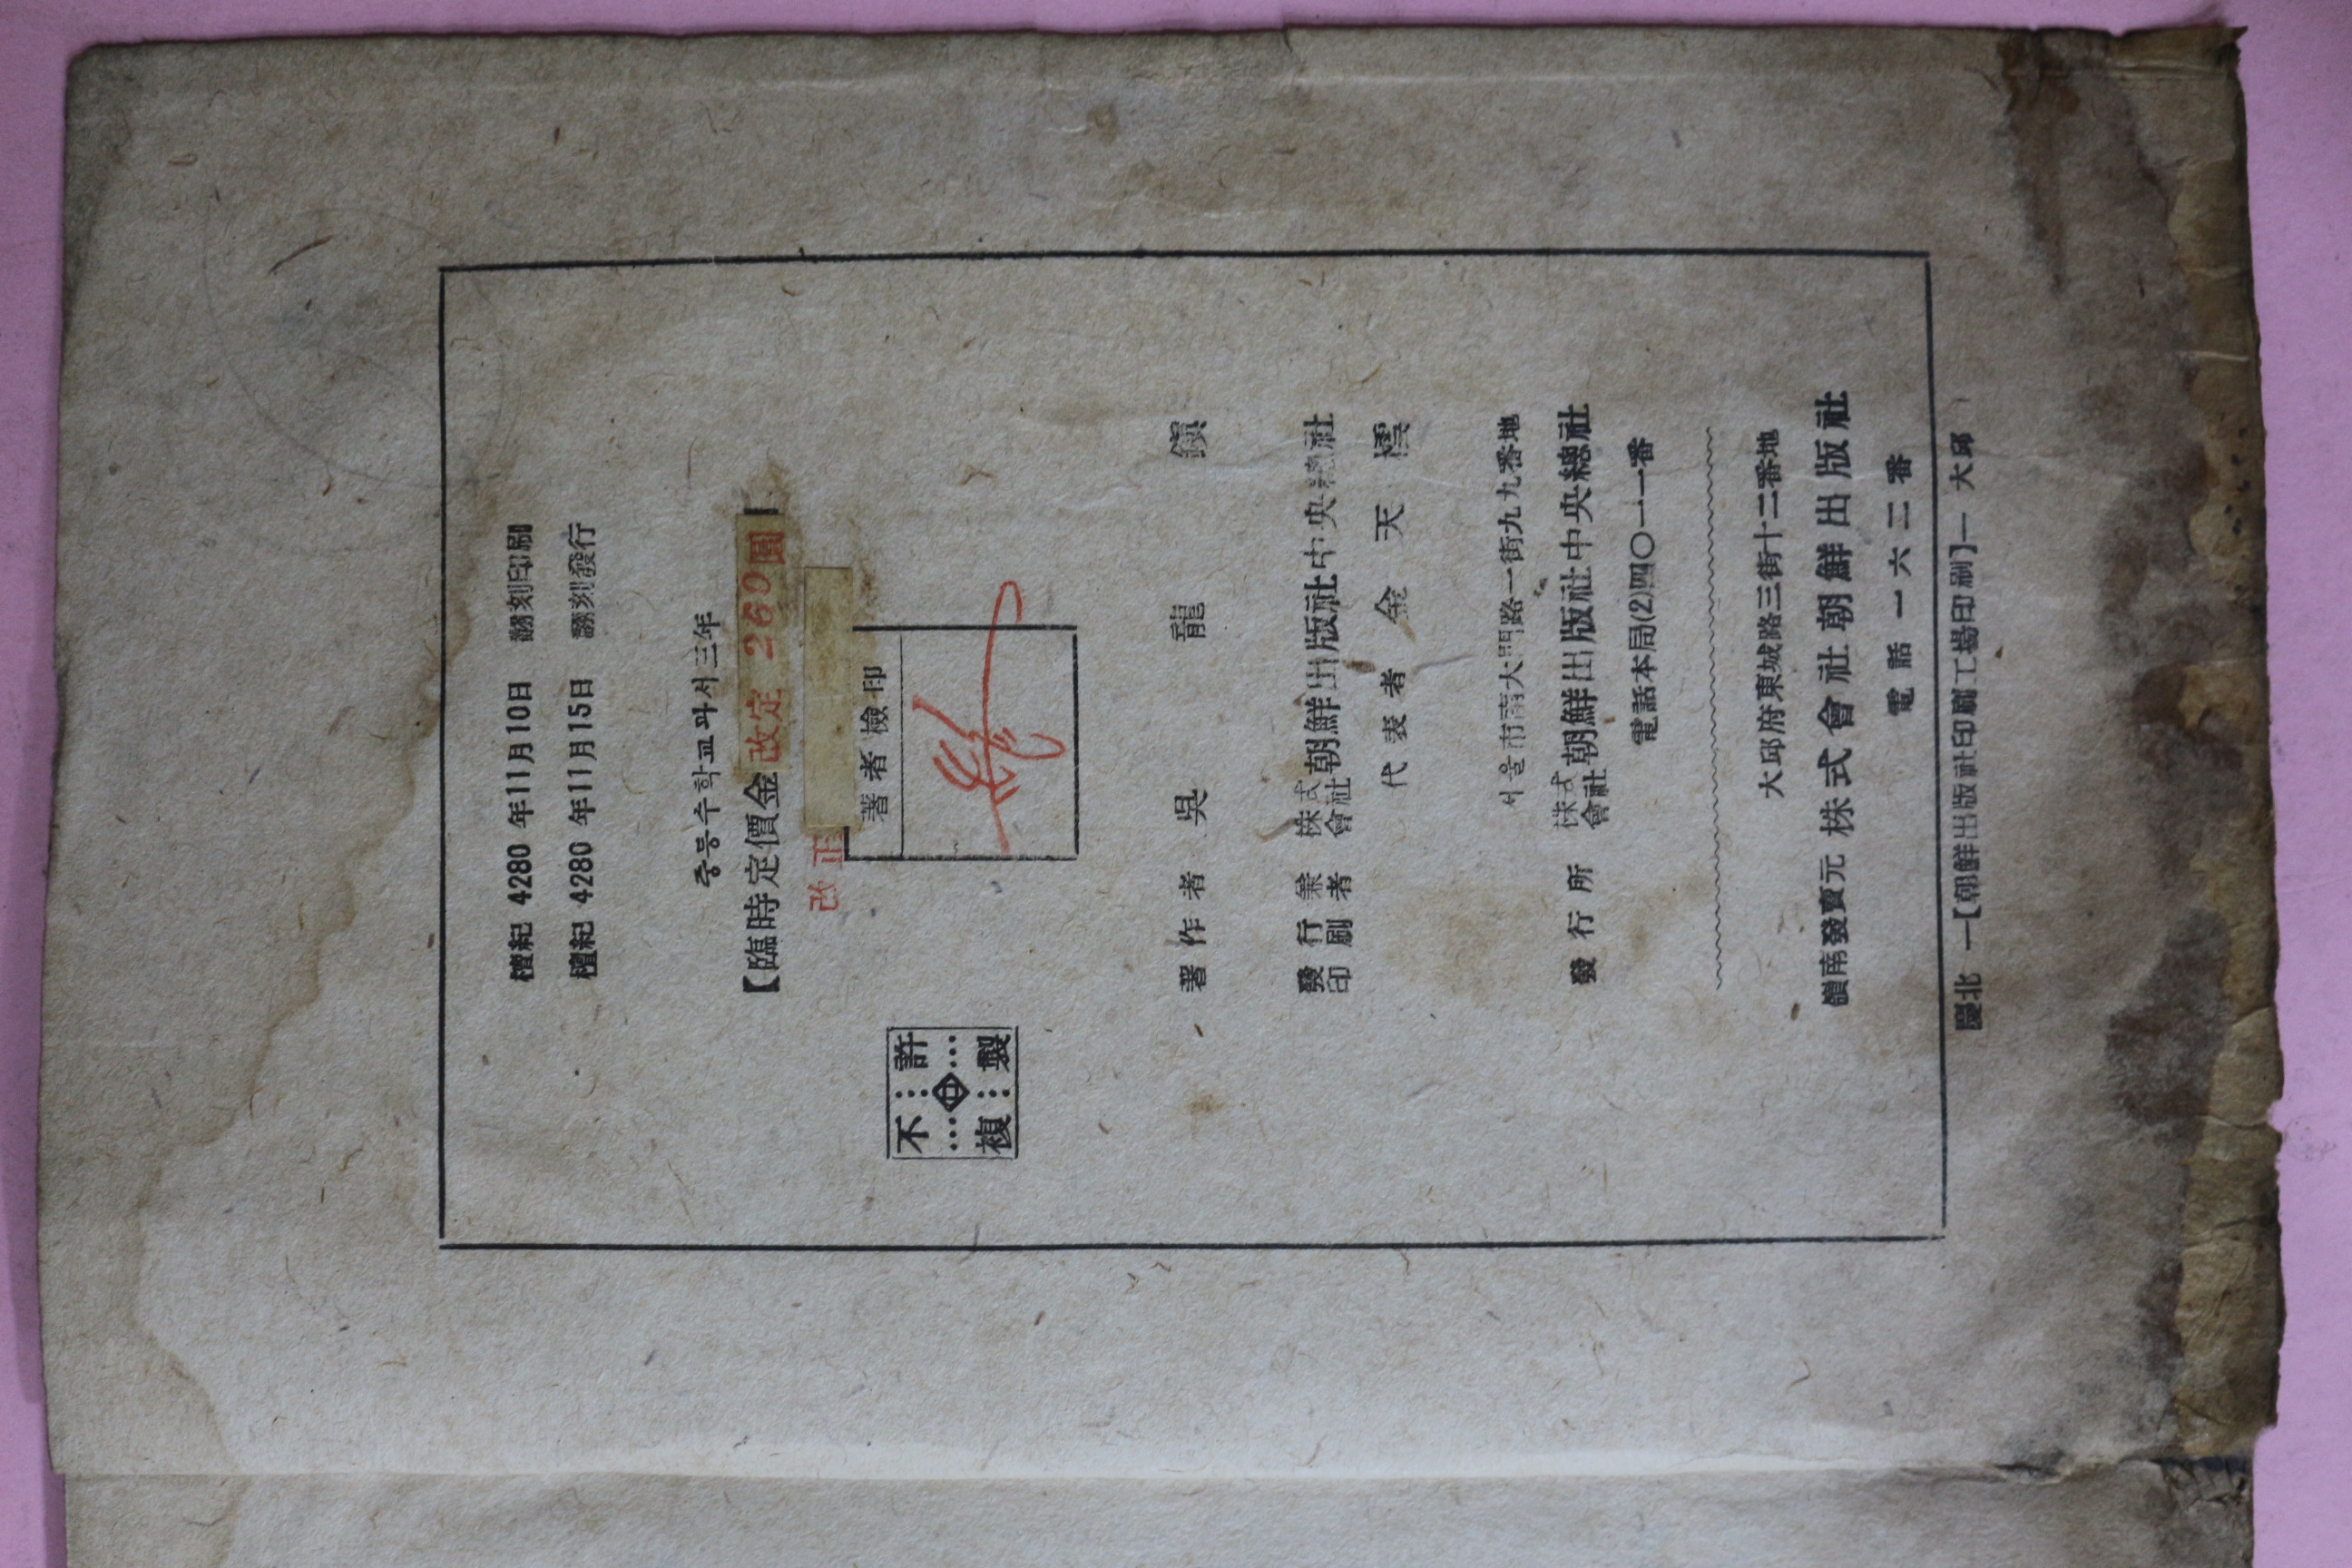 檀紀 4280 年11月10日 翻刻印刷
檀紀 4280 年11月15日 翻刻發行
중등수학교과서三年
【臨時定價金 改定 260圓】
改正
著者檢印
不許
複製
著作者 吳龍鎭
發行兼印刷者 株式會社 朝鮮出版社中央總社
代表者 金天
서울市南大門路一街九九番地
發行所 株式會社 朝鮮出版社中央總社
電話本局(2)四〇一一番
大邱府東城路三街十二番地
嶺南發賣元 株式會社朝鮮出版社
電話 一六三二番
慶北 一【朝鮮出版社印刷工場印刷】一 大邱